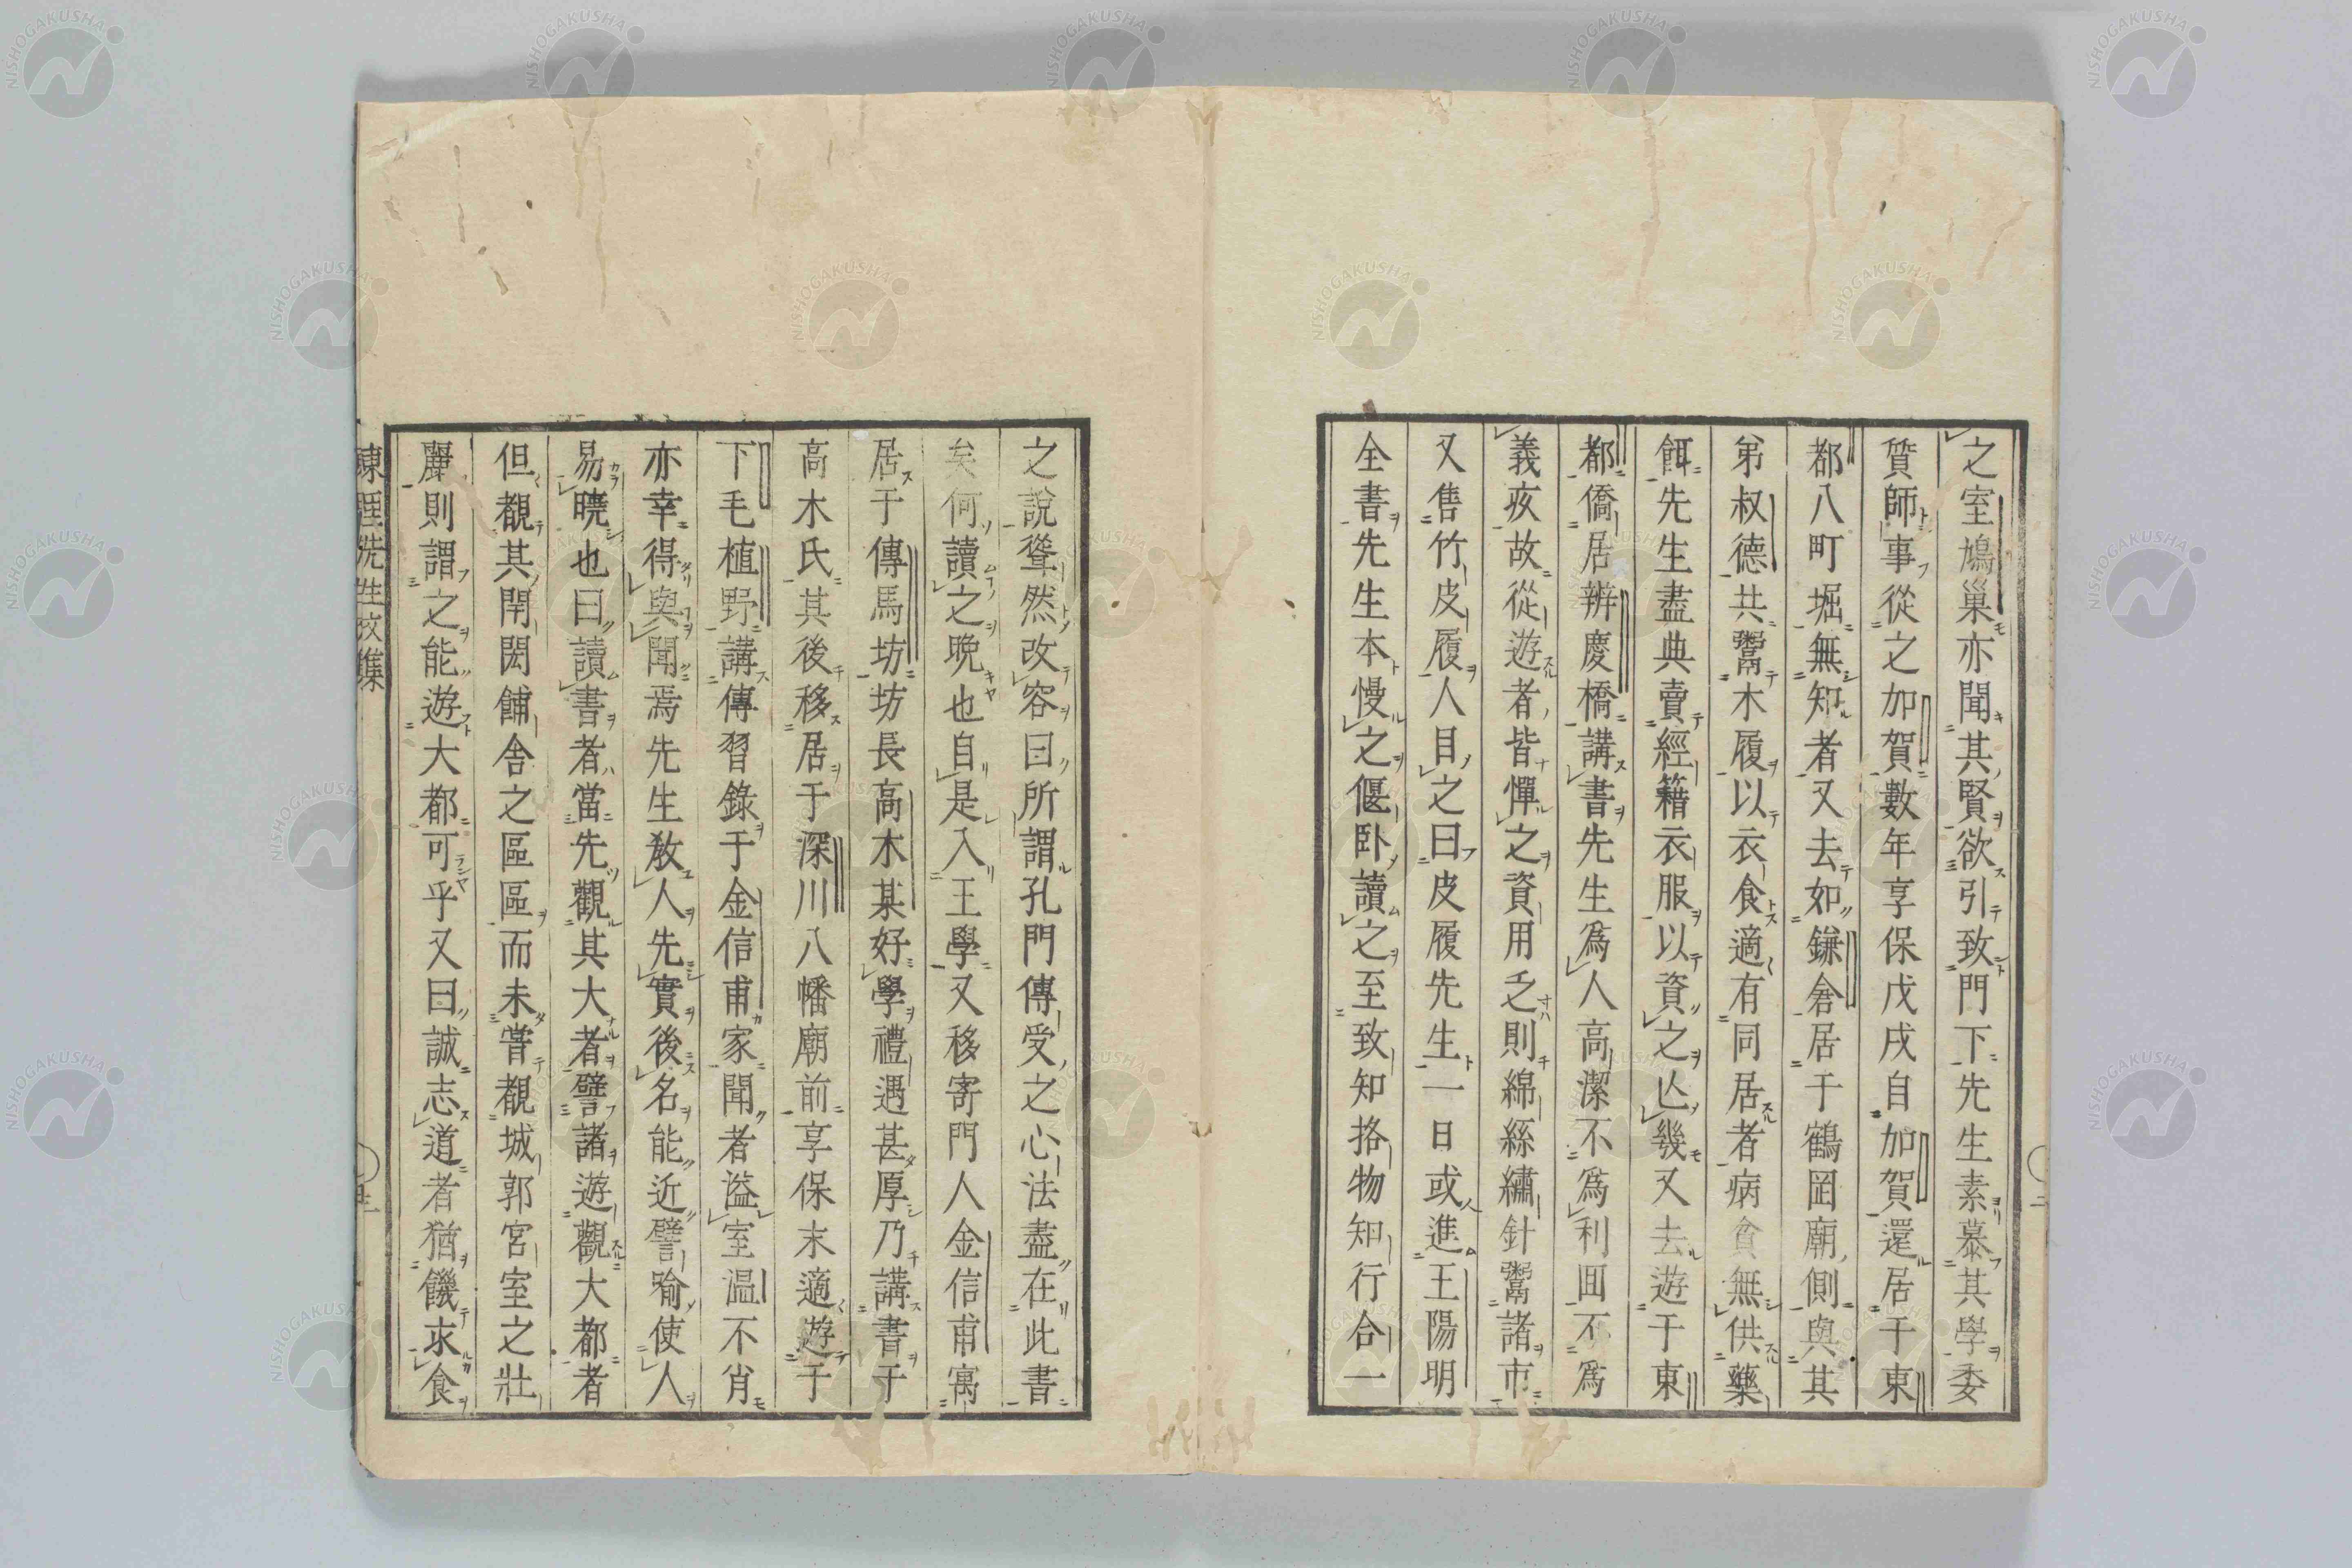 之室鳩巢亦聞其賢欲引致門下先生素慕其學委
質師事從之加賀數年享保戊戌自加賀還居于東
都八町堀無知者又去如鎌倉居于鶴岡廟側與其
弟叔德共鬻木履以衣食適有同居者病貧無供藥
餌先生盡典賣經籍衣服以資之亾幾又去遊于東
都僑居辨慶橋講書先生爲人高潔不爲利囬不爲
義疚故從遊者皆憚之資用乏則綿絲繡針鬻諸市
又售竹皮履人目之曰皮履先生一日或進王陽明
全書先生本慢之偃臥讀之至致知挌物知行合一
之說聳然改容曰所謂孔門傳受之心法盡在此書
矣何讀之晩也自是入王學又移寄門人金信甫寓
居于傳馬坊坊長高木某好學禮遇甚厚乃講書于
高木氏其後移居于深川八幡廟前享保末適遊于
下毛植野講傳習錄于金信甫家聞者溢室温不肖
亦幸得與聞焉先生敎人先實後名能近譬喻使人
易曉也曰讀書者當先觀其大者譬諸遊觀大都者
但覩其閈閎舖舍之區區而未嘗覩城郭宮室之壯
麗則謂之能遊大都可乎又曰誠志道者猶饑求食
先生文集
NISHOGAKUSHA